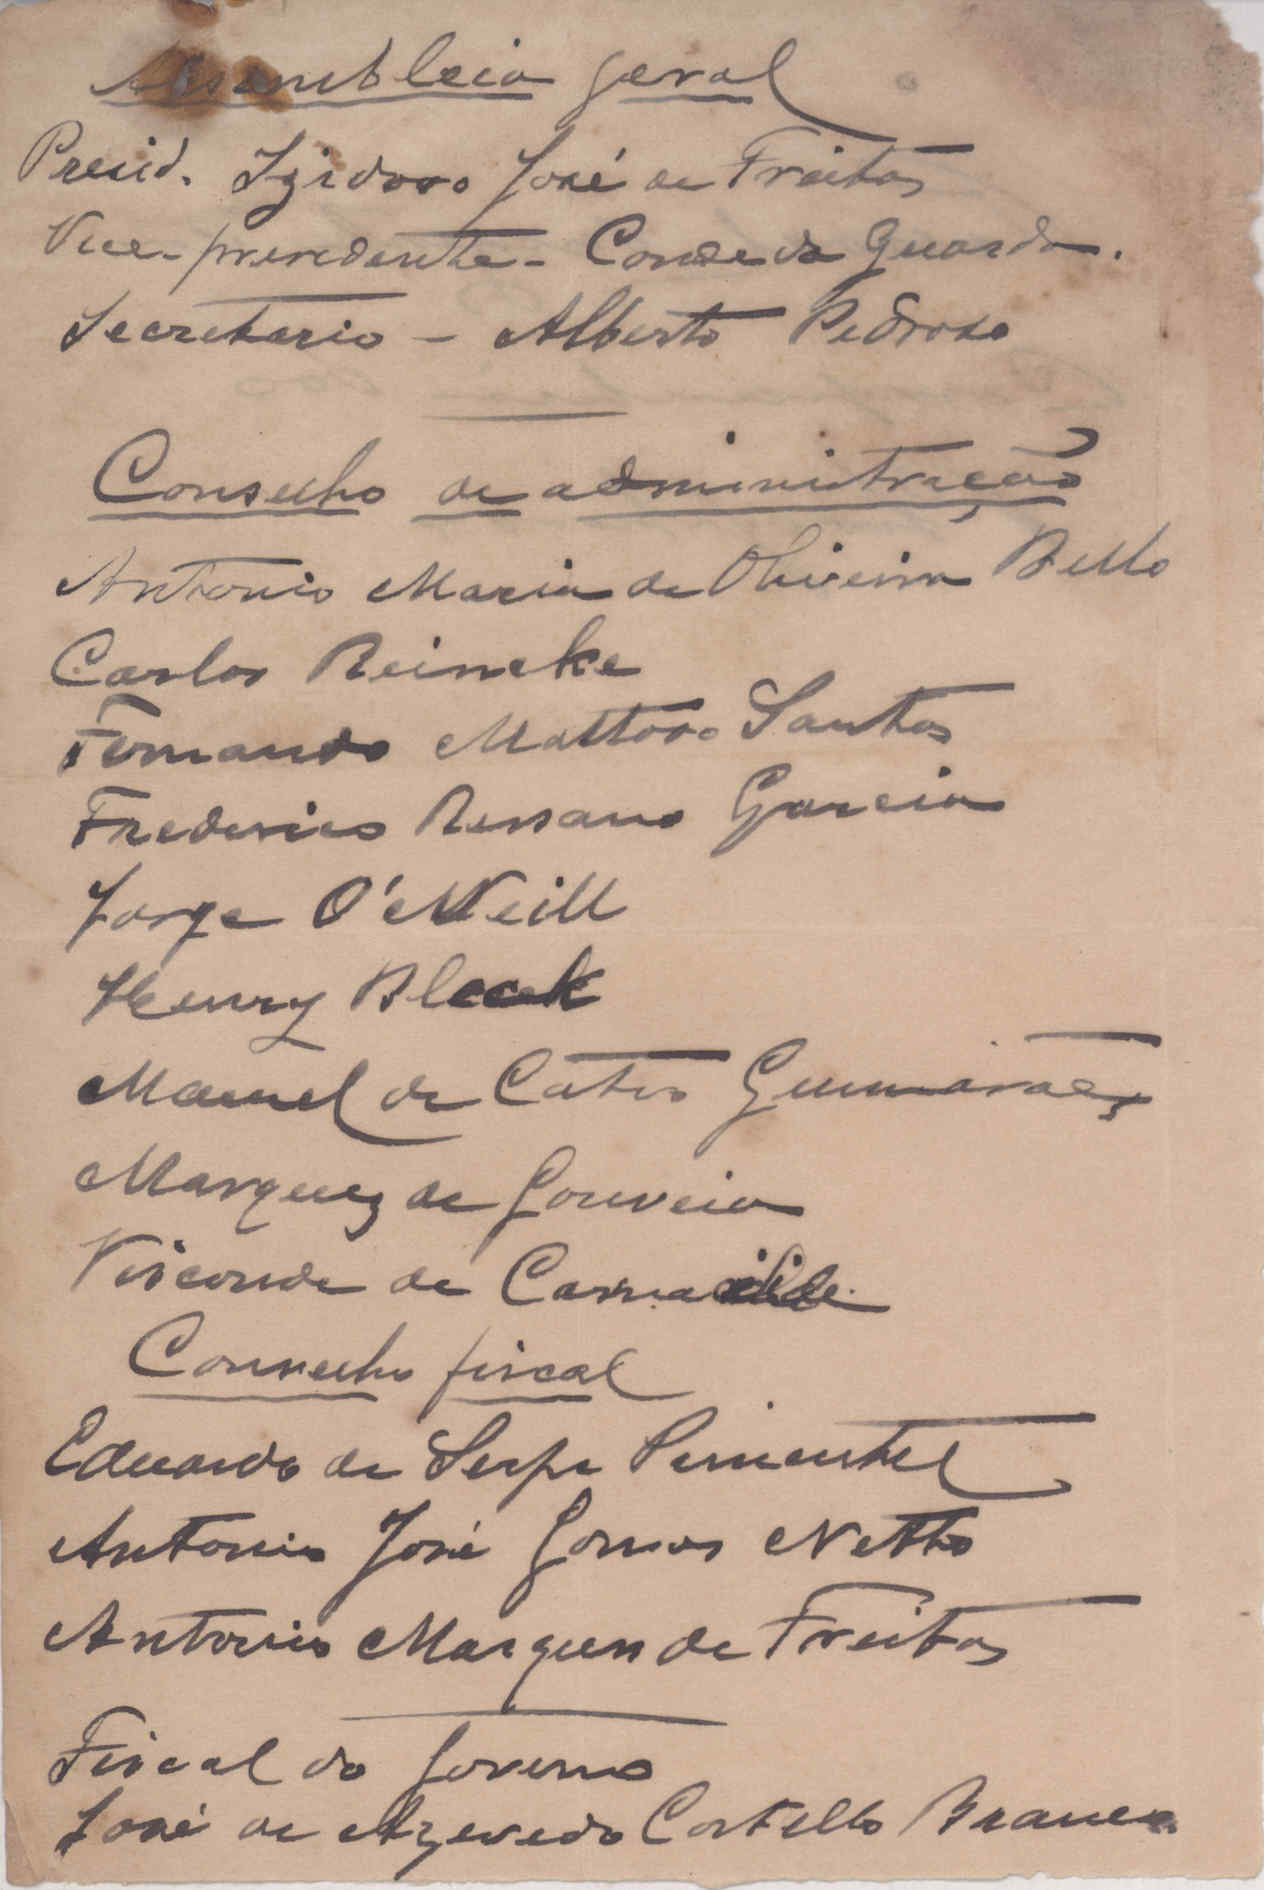 Assembleia geral
Presid. Izidoro José de Freitas
Vice-presidente - Conde da Guarda.
Secretario - Alberto Pedroso
Conselho de administração
Antonio Maria de Oliveira Bello
Carlos Reincke
Fernando Mattoso Santos
Frederico Ressano Garcia
Jorge O'Neill
Henry Bleck
Manuel de Castro Guimarães
Marquez de Gouveia
Visconde de Carnaxide
Conselho fiscal
Eduardo de Serpa Pimentel
Antonio José Gomes Netto
Antonio Marques de Freitas
Fiscal do Governo
José de Azevedo Castello Branco.